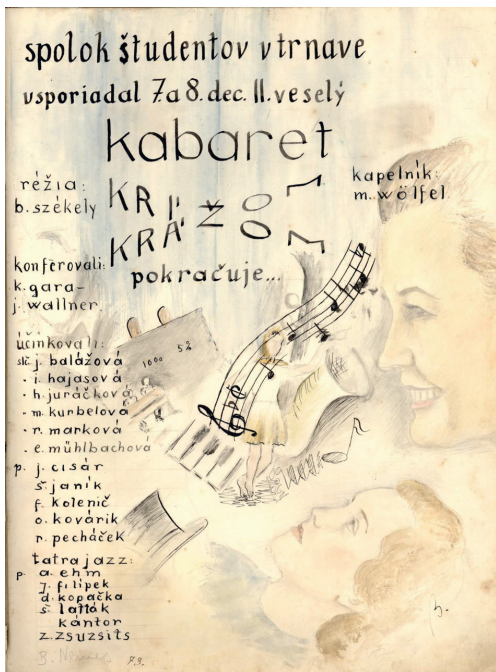 spolok študentov v trnave
usporiadal 7. a 8. dec. II. veselý
kabaret
réžia:
b. székely
KRÍŽOM
KRÁŽOM
kapelník:
m. wölfel
pokračuje...
konferovali:
k. gara-
j. wallner.
účinkovali:
slč. j. balážová
- i. hajasová
- h. juráčková
- m. kurbelová
- r. marková
- e. mühlbachová
p. j. cisár
š. janík
f. kolenič
o. kovárik
r. pecháček
tatra jazz:
p. a. ehm
j. filípek
d. kopačka
š. latták
kántor
z. zsuzsits
1000 5%